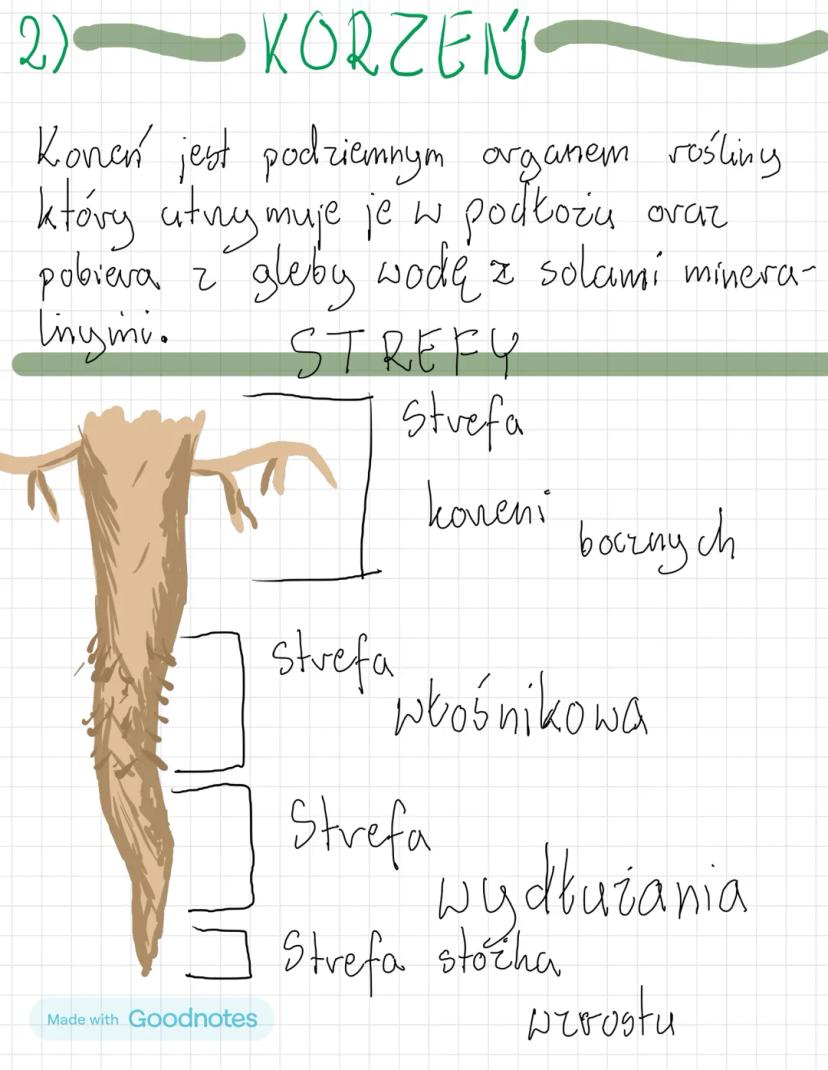 2) KORZEŃ
Korzeń jest podziemnym organem rośliny
który utrzymuje je w podłożu oraz
pobiera z gleby wodę z solami minera-
lnymi.
STREFY
Strefa
korzeni
bocznych
Strefa
włośnikowa
Strefa
wydłużania
Strefa stożka
wzrostu
Made with Goodnotes